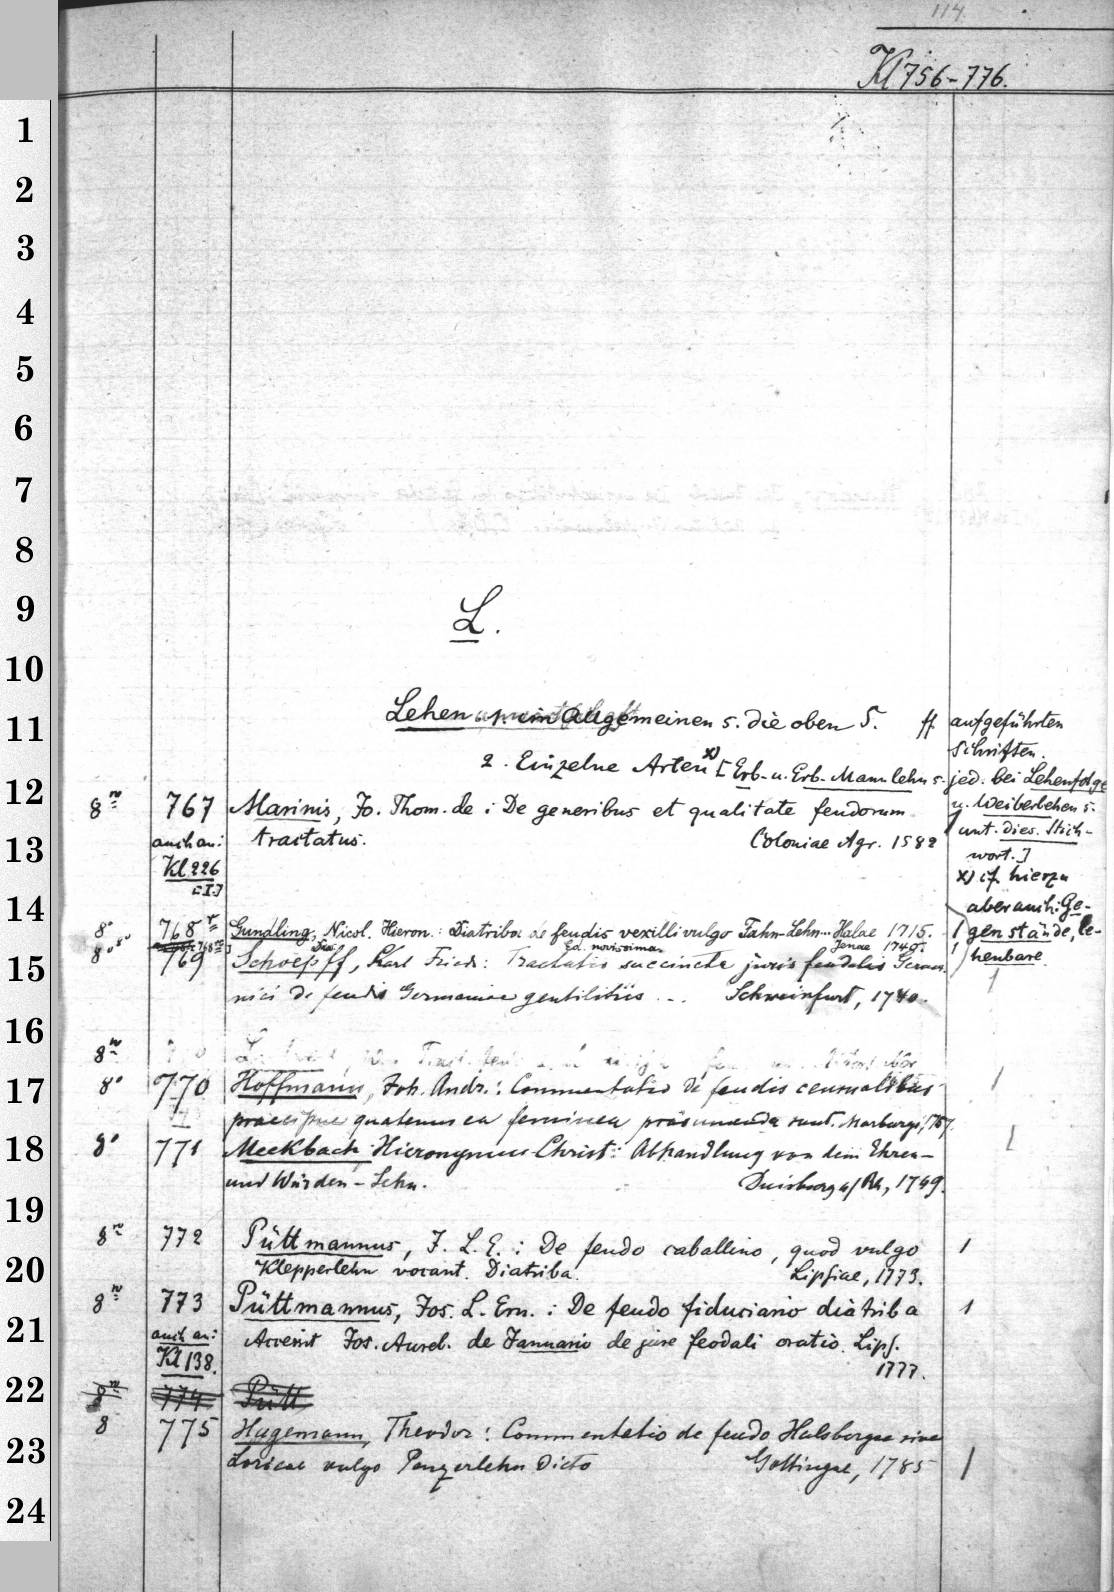 114
Kl 756-776.
L.
Lehen im Allgemeinen s. die oben S. ff. aufgeführten
Schriften.
2. Einzelne Arten x) [Erb- u. Erb-Mannlehn s. jed. bei Lehenfolge
u. Weiberlehen s.
unt. dies. Stich-
wort.]
x) cf. hierzu
aber auch: Ge-
genstände, le-
henbare.
8° 767 Marinis, Jo. Thom. de: De generibus et qualitate feudorum
auch an: tractatus. Coloniae Agr. 1582
Kl 226
[I.]
8° 768 Gundling, Nicol. Hieron.: Diatriba de feudis vexilli vulgo Fahn-Lehn... Halae 1715. 1
Ed. novissima. Jenae 1749.
8° 769 Schoepff, Karl Friedr: Tractatio succincta juris feudalis Germa- 1
nici de feudis Germaniae gentilitiis ... Schweinfurt, 1740.
8°
8° 770 Hoffmann, Joh. Andr.: Commentatio de feudis censualibus 1
praecipue quatenus ea feminea präsumenda sunt. Marburgi, 1757.
8° 771 Meckbach Hieronymus Christ: Abhandlung von dem Ehren- 1
und Würden-Lehn. Duisburg a/Rh, 1749.
8° 772 Püttmannus, J. L. E.: De feudo caballino, quod vulgo 1
Klepperlehn vocant. Diatriba. Lipsiae, 1773.
8° 773 Püttmannus, Jos. L. Ern.: De feudo fiduciario diatriba 1
auch an: Accessit Jos. Aurel. de Januario de jure feodali oratio. Lips.
Kl 138. 1777.
8° 774 Pütt
8 775 Hagemann, Theodor: Commentatio de feudo Halsbergae sive
Loricae vulgo Panzerlehn dicto Gottingae, 1785 1
1
2
3
4
5
6
7
8
9
10
11
12
13
14
15
16
17
18
19
20
21
22
23
24